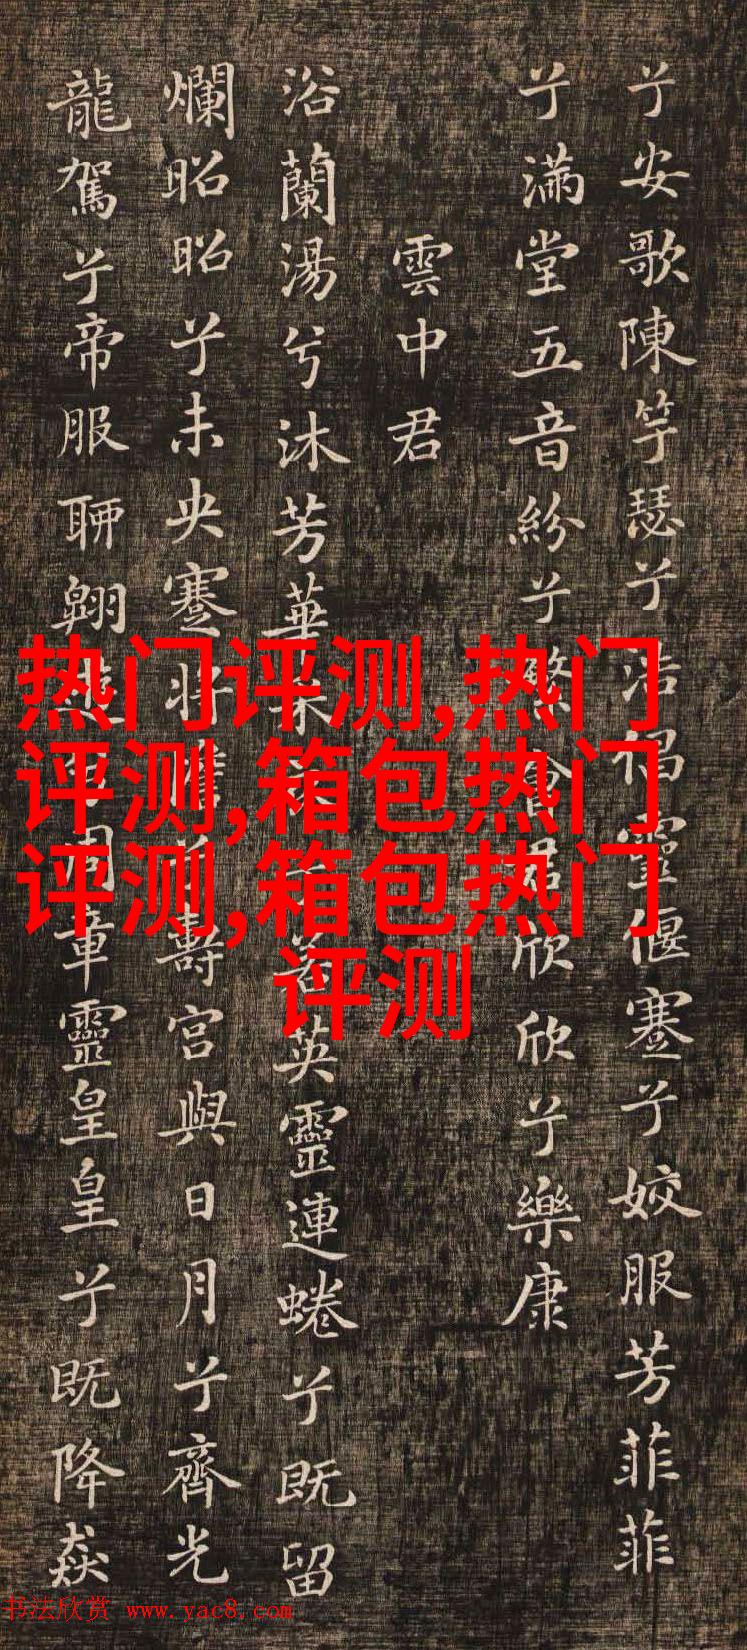 兮安歌陳竽瑟兮浩倡靈偃蹇兮姣服芳菲菲
兮滿堂五音紛兮繁會君欣欣兮樂康
雲中君
浴蘭湯兮沐芳華采若英靈連蜷兮既留
爛昭昭兮未央蹇將壽宮與日月兮齊光
龍駕兮帝服聊翱遊周章靈皇皇兮既降猋
热门评测,热门
评测,箱包热门
评测,箱包热门
评测
书法欣赏 www.yac8.com